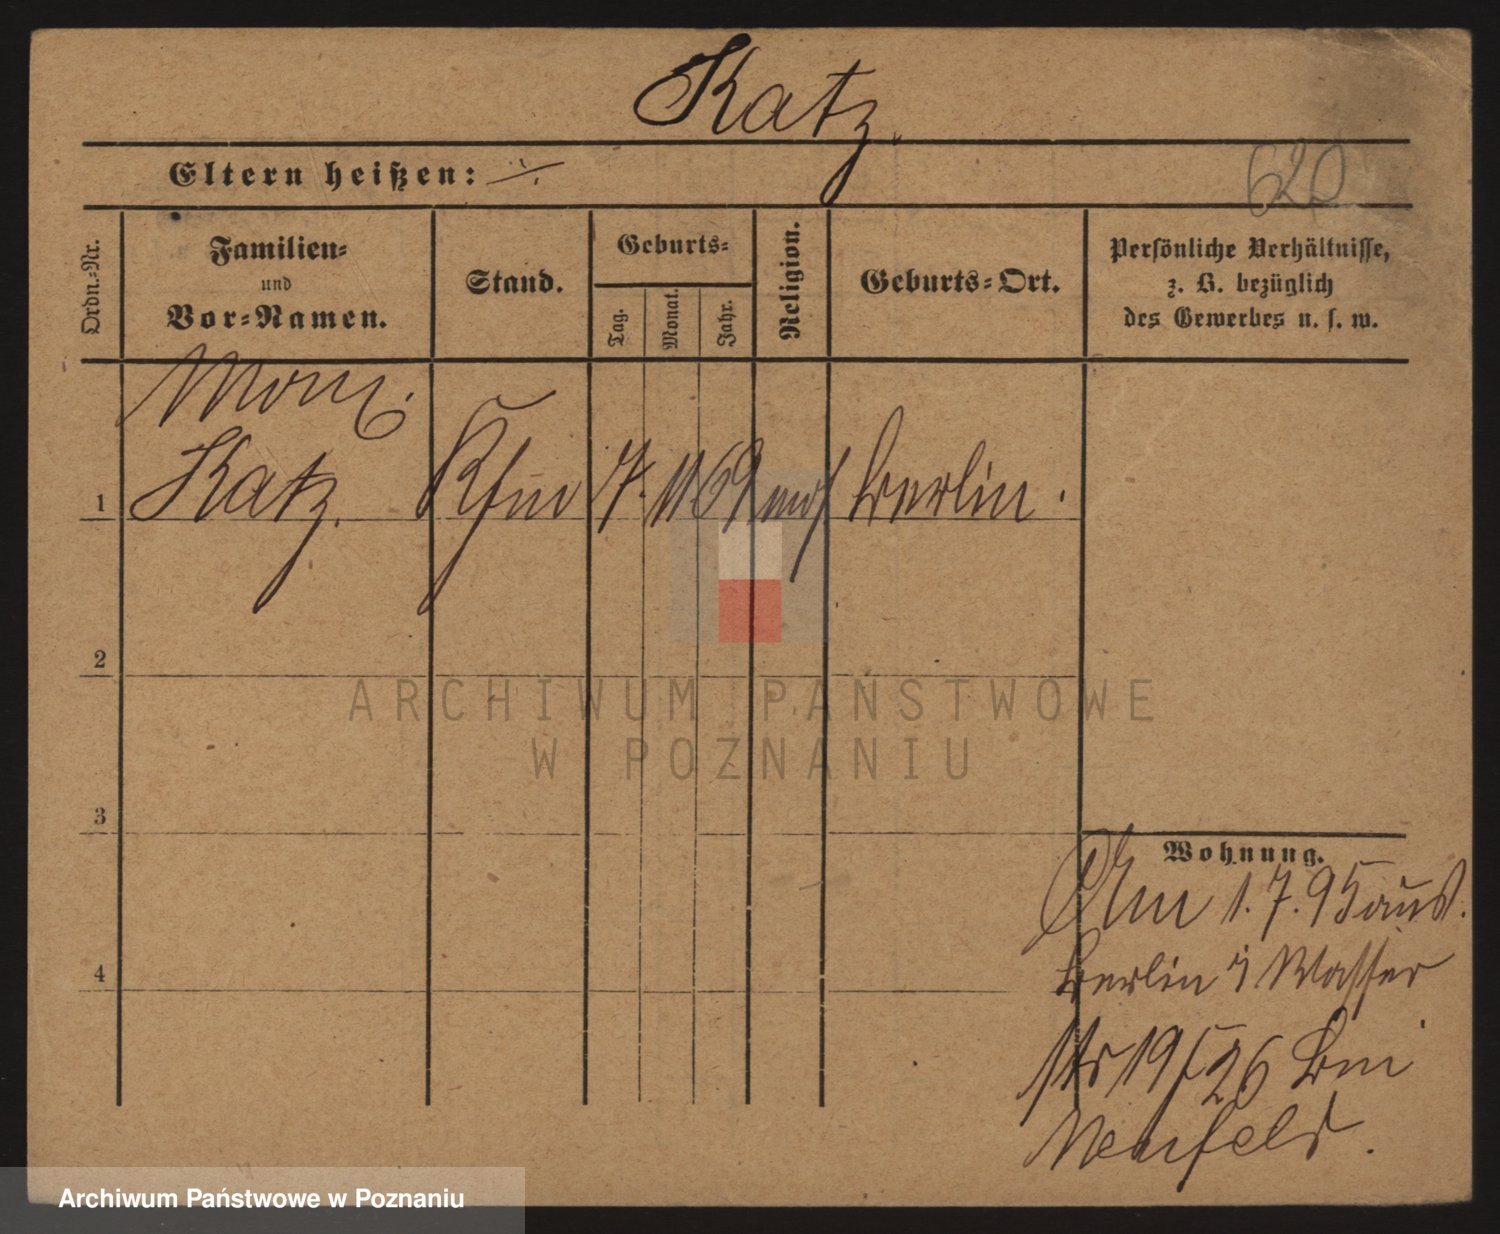 Katz
Eltern heißen: ./.
620
Ordn.-Nr.
Familien-
und
Vor-Namen.
Stand.
Geburts-
Tag.
Monat.
Jahr.
Religion.
Geburts-Ort.
Persönliche Verhältnisse,
z. B. bezüglich
des Gewerbes u. s. w.
1 Katz. Kfm 7. 11. 69 Berlin.
2
3
4
Wohnung.
Am 1.7.95 aus
Berlin Wasser
str 19/26 bei
ARCHIWUM PAŃSTWOWE
W POZNANIU
Archiwum Państwowe w Poznaniu